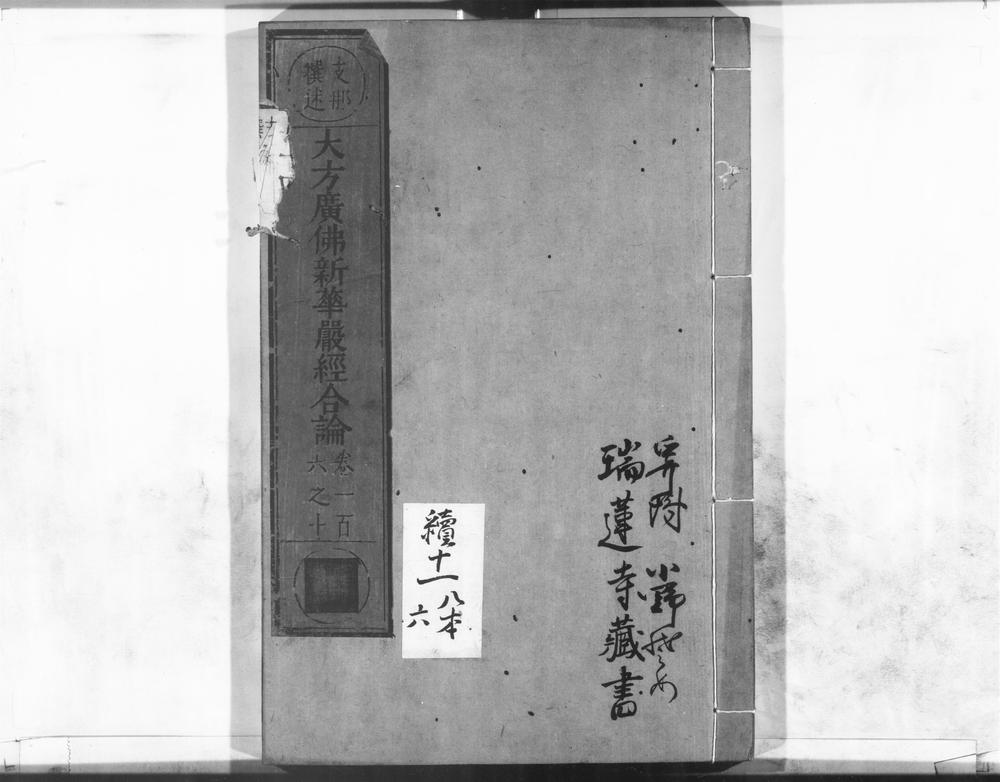 瑞蓮寺藏書
續十一
八本
六
支那
撰述
大方廣佛新華嚴經合論
卷一百
六之十